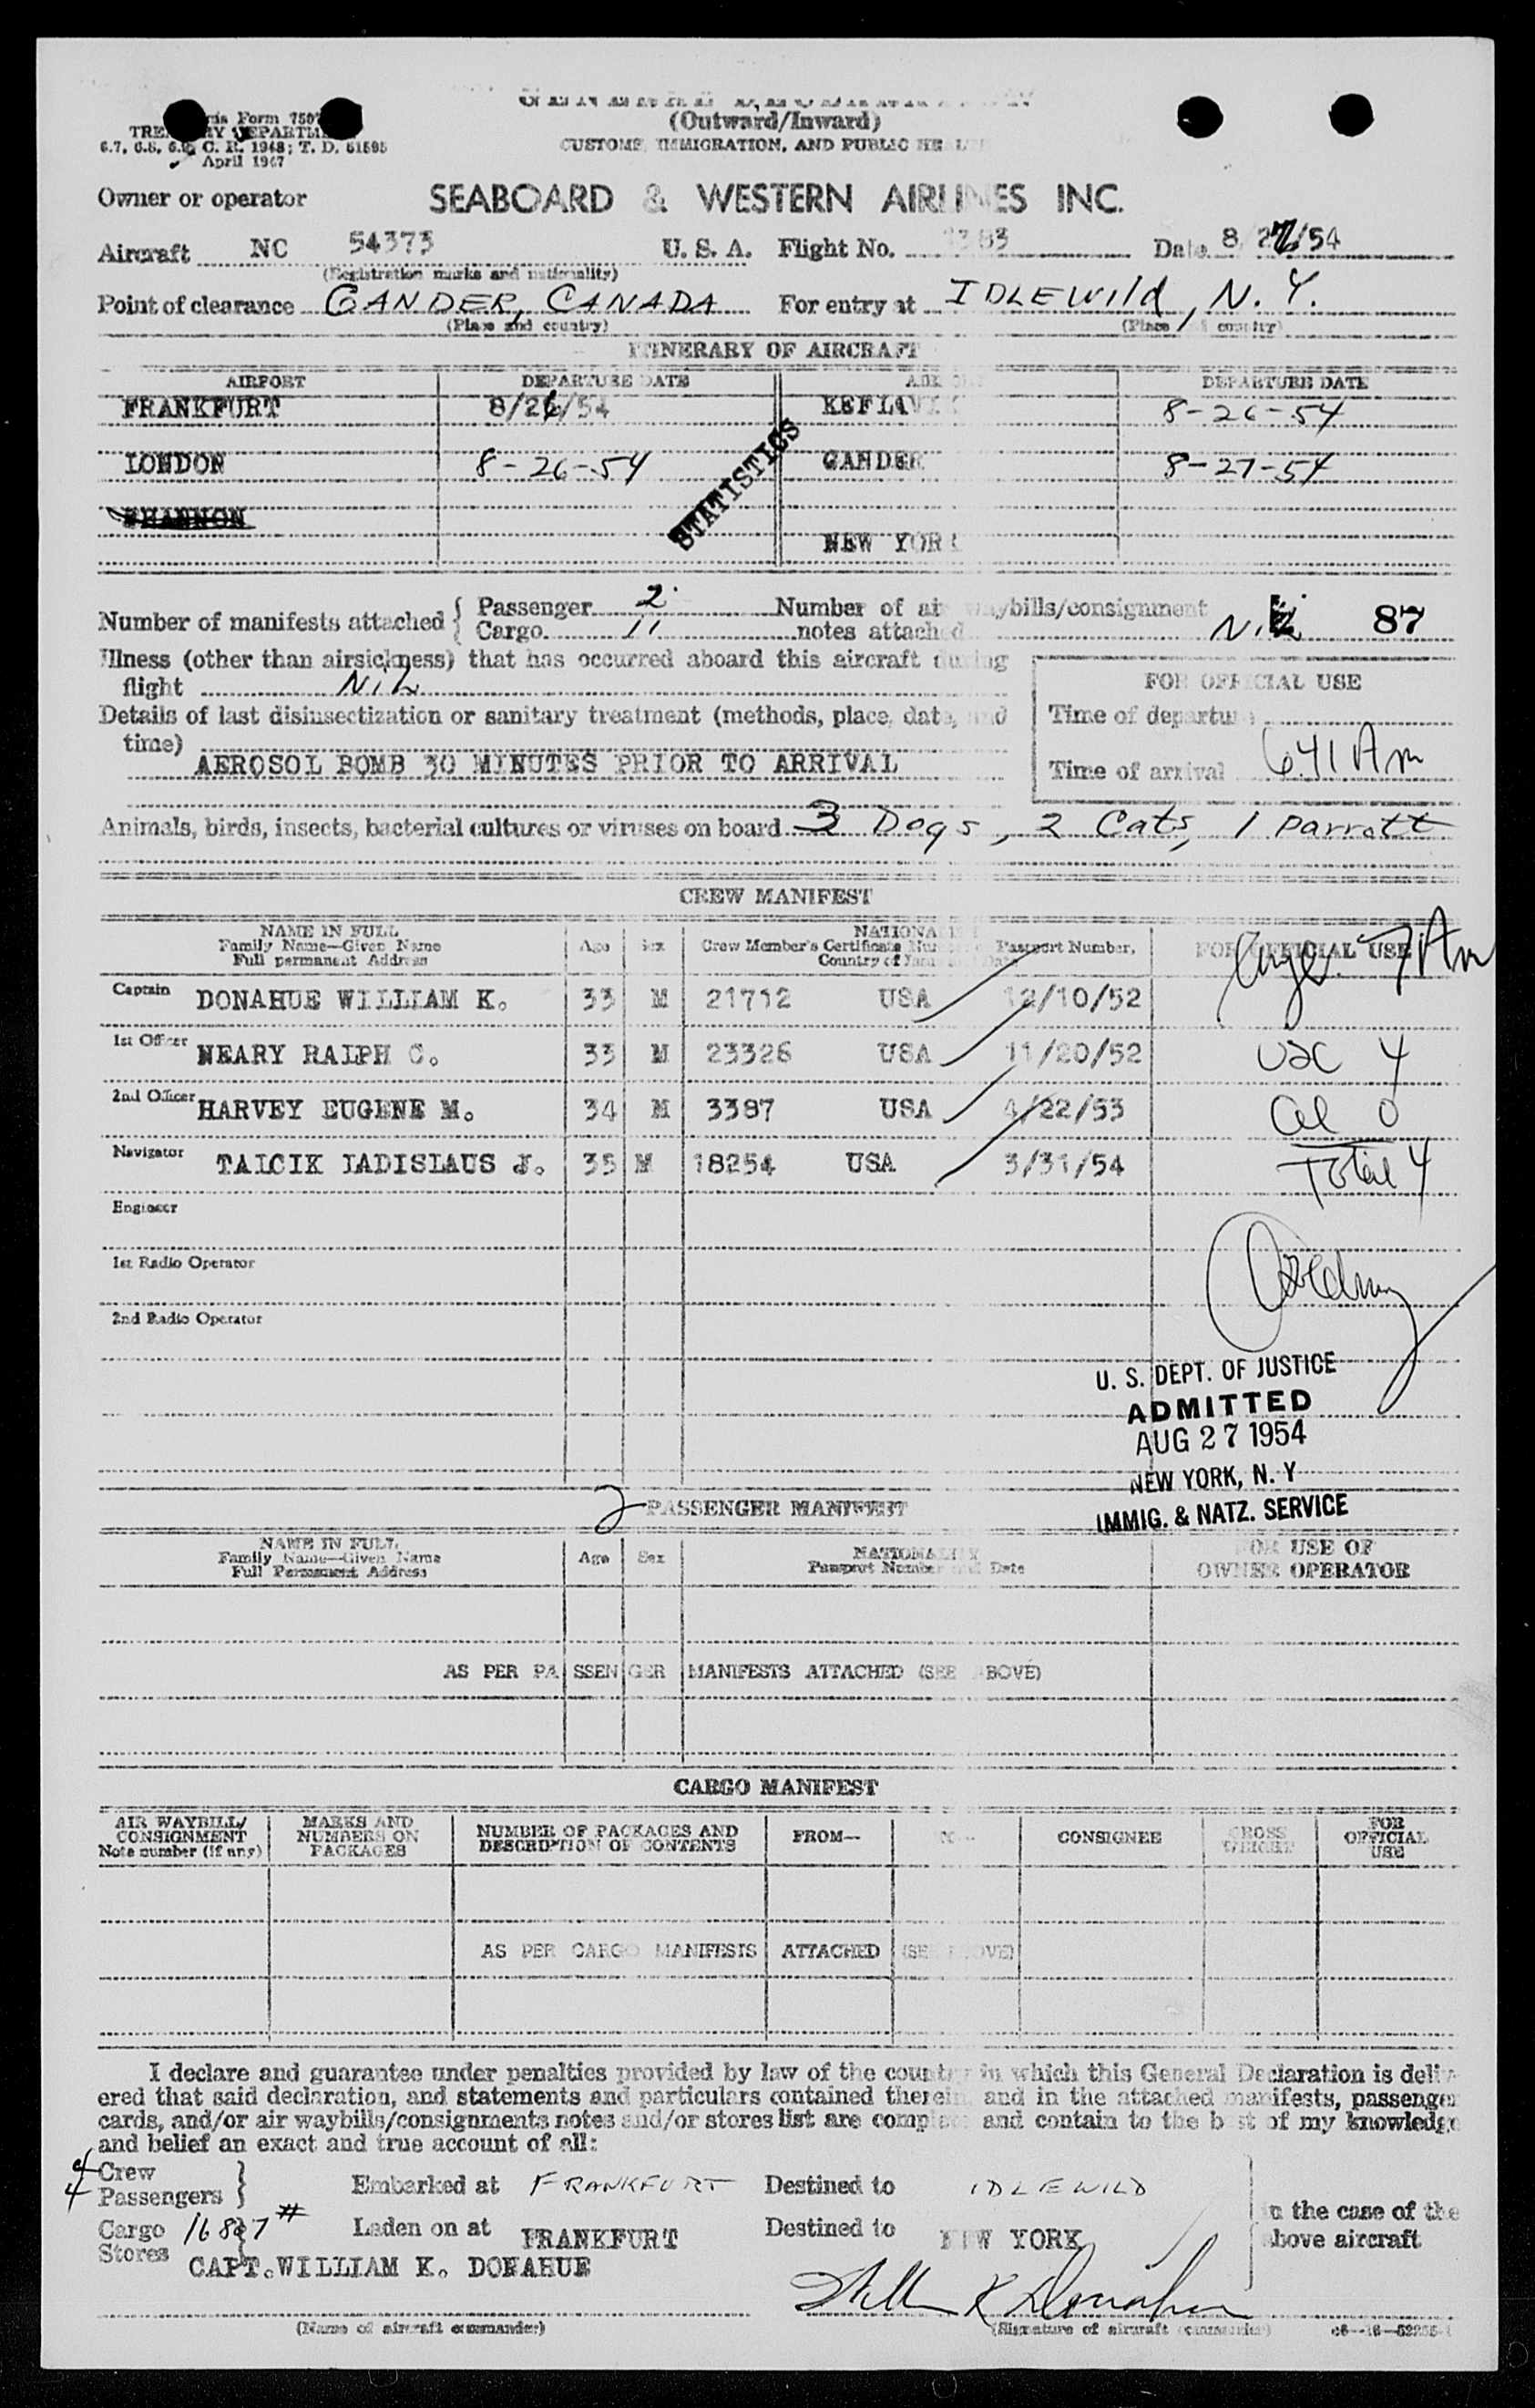 Form 7507
TREASURY DEPARTMENT
6.7, 6.8, 6.9, C. R. 1948; T. D. 51595
April 1947
(Outward/Inward)
CUSTOMS, IMMIGRATION, AND PUBLIC HEALTH
Owner or operator SEABOARD & WESTERN AIRLINES INC.
Aircraft NC 54373 U. S. A. Flight No. Date 8 27/54
(Registration marks and nationality)
Point of clearance GANDER, CANADA For entry at IDLEWild, N. Y.
(Place and country) (Place country)
ITINERARY OF AIRCRAFT
AIRPORT DEPARTURE DATE DEPARTURE DATE
FRANKFURT 8/26/54 KEFLAVIK 8-26-54
LONDON 8-26-54 GANDER 8-27-54
SHANNON
NEW YORK
STATISTICS
Number of manifests attached { Passenger 2 Number of air waybills/consignment
Cargo 11 notes attached Nil 87
Illness (other than airsickness) that has occurred aboard this aircraft during
flight NiL
FOR OFFICIAL USE
Details of last disinsectization or sanitary treatment (methods, place, date, and
time)
Time of departure
AEROSOL BOMB 30 MINUTES PRIOR TO ARRIVAL
Time of arrival 6:41 Am
Animals, birds, insects, bacterial cultures or viruses on board 3 Dogs, 2 Cats, 1 parrott
CREW MANIFEST
NAME IN FULL
Family Name—Given Name
Full permanent Address
Age Sex
Crew Member's Certificate Passport Number,
Country of
FOR OFFICIAL USE
7 Am
Captain DONAHUE WILLIAM K. 33 M 21712 USA 12/10/52
1st Officer NEARY RALPH C. 33 M 23326 USA 11/20/52 USC 4
2nd Officer HARVEY EUGENE M. 34 M 3387 USA 4/22/53 al 0
Navigator TALCIK LADISLAUS J. 35 M 18254 USA 3/31/54 Total 4
Engineer
1st Radio Operator
2nd Radio Operator
U. S. DEPT. OF JUSTICE
ADMITTED
AUG 27 1954
NEW YORK, N. Y
IMMIG. & NATZ. SERVICE
2 PASSENGER MANIFEST
NAME IN FULL
Family Name—Given Name
Full Permanent Address
Age Sex
NATIONALITY
Passport Number and Date
FOR USE OF
OWNER OPERATOR
AS PER PASSENGER MANIFESTS ATTACHED (SEE ABOVE)
CARGO MANIFEST
AIR WAYBILL/
CONSIGNMENT
Note number (if any)
MARKS AND
NUMBERS ON
PACKAGES
NUMBER OF PACKAGES AND
DESCRIPTION OF CONTENTS
FROM—
CONSIGNEE
GROSS
WEIGHT
FOR
OFFICIAL
USE
AS PER CARGO MANIFESTS ATTACHED (SEE ABOVE)
I declare and guarantee under penalties provided by law of the country in which this General Declaration is deliv-
ered that said declaration, and statements and particulars contained therein and in the attached manifests, passenger
cards, and/or air waybills/consignments notes and/or stores list are complete and contain to the best of my knowledge
and belief an exact and true account of all:
4 Crew
4 Passengers } Embarked at FRANKFURT Destined to IDLEWILD
in the case of the
above aircraft
Cargo 16827# Laden on at FRANKFURT Destined to NEW YORK
Stores
CAPT. WILLIAM K. DONAHUE
William K Donahue
(Name of aircraft commander) (Signature of aircraft commander)